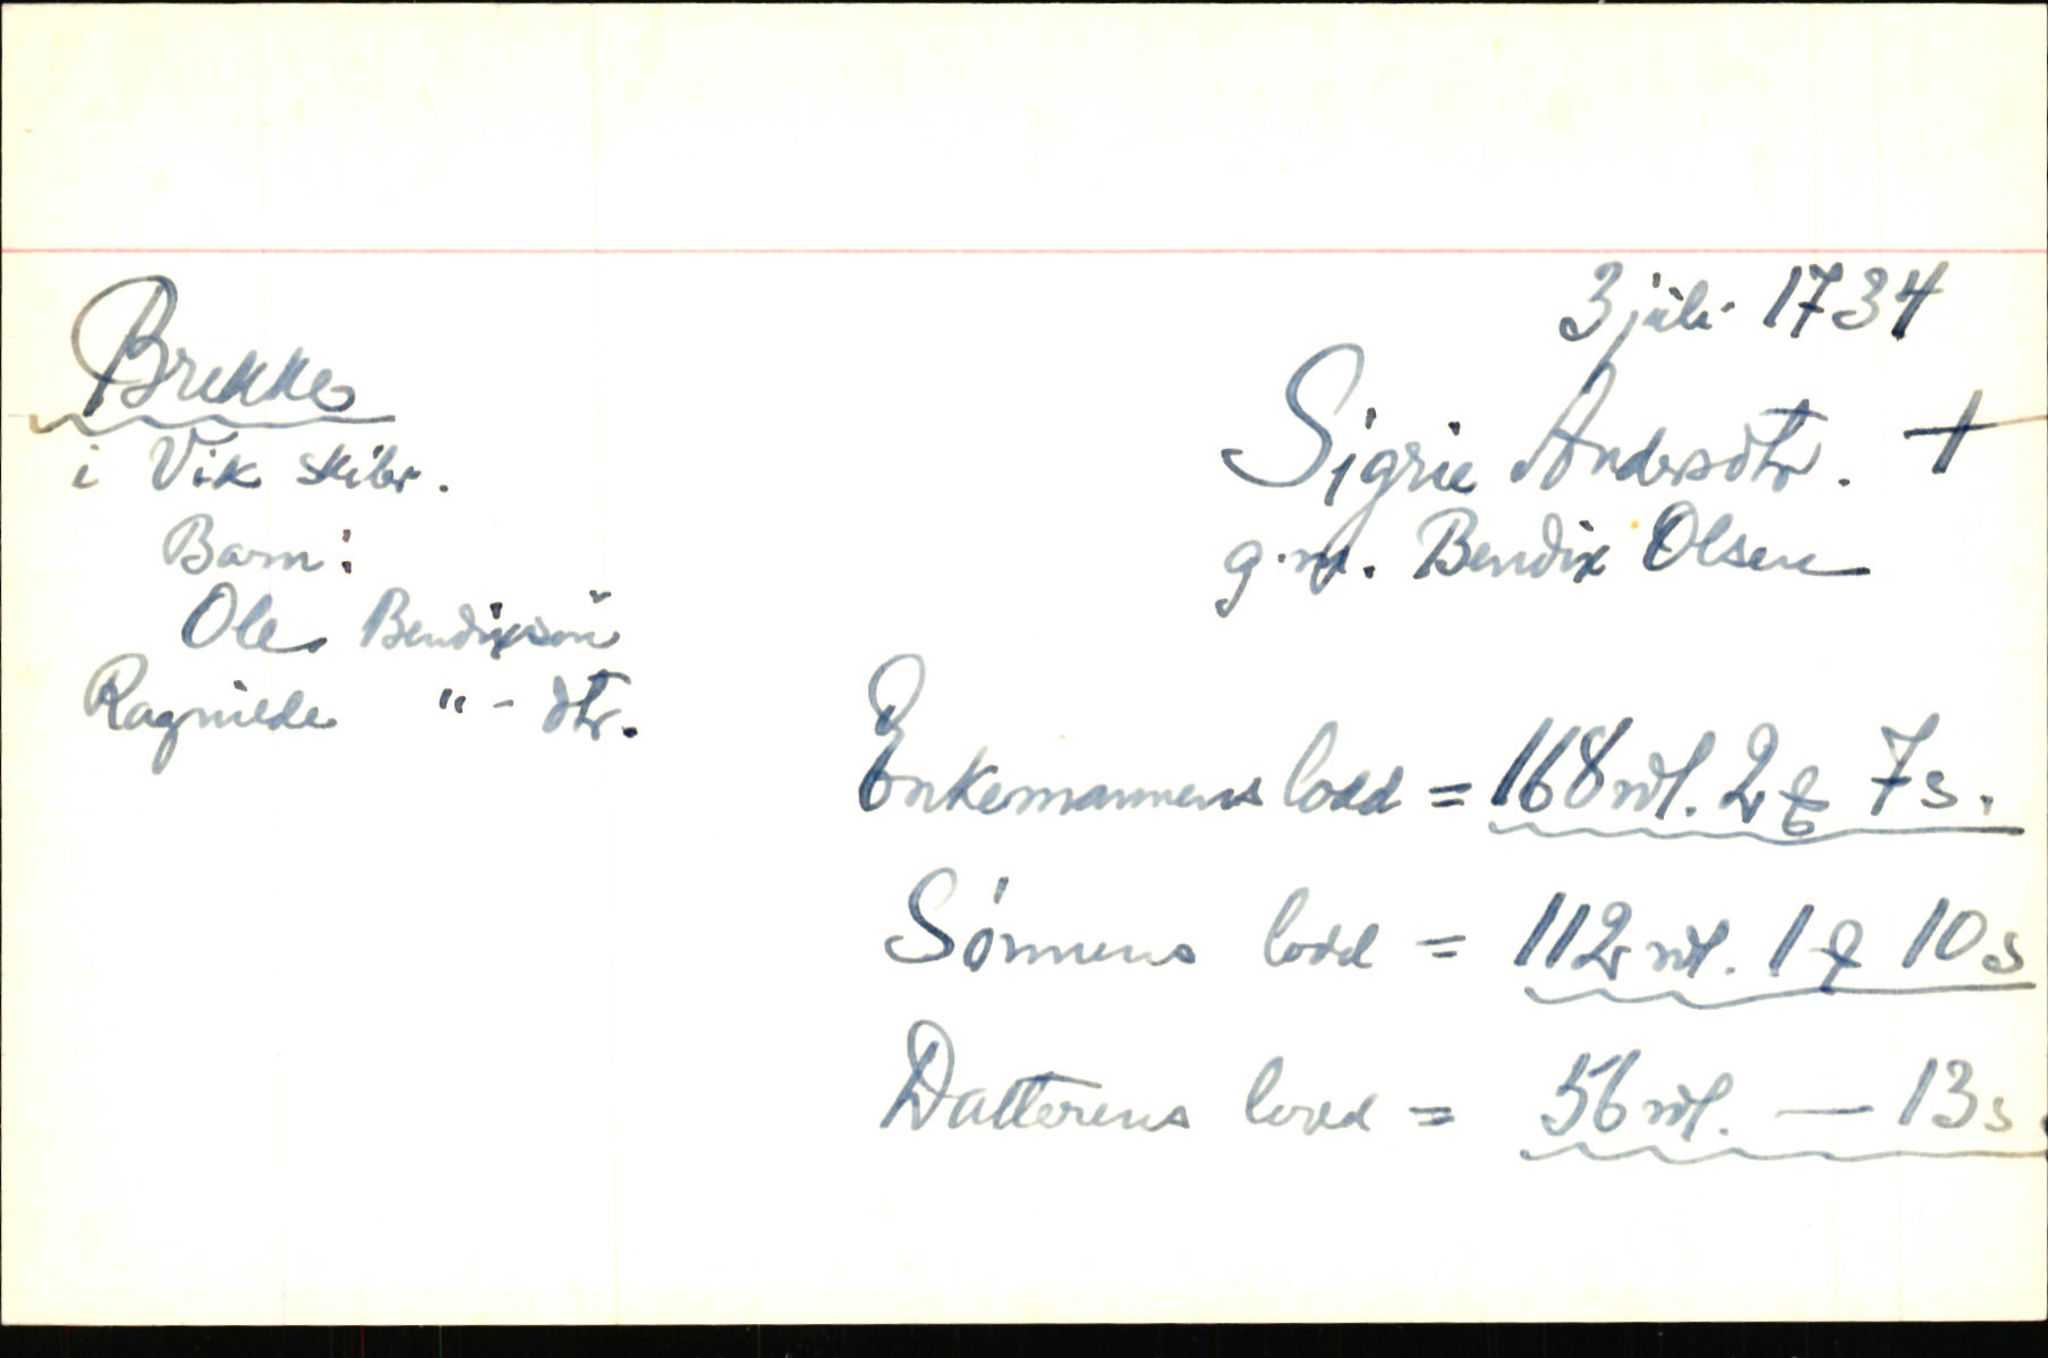 3 juli 1734
Brekke
i Vik skibr.
Sigrie Andersdtr. +
g.m. Bendix Olsen
Barn:
Ole Bendixsøn
Ragnilde "- dtr.
Enkemannens lodd = 168 rdl. 2 7 s.
Sønnens lodd = 112 rdl. 1 10 s
Datterens lodd = 56 rdl. — 13 s.